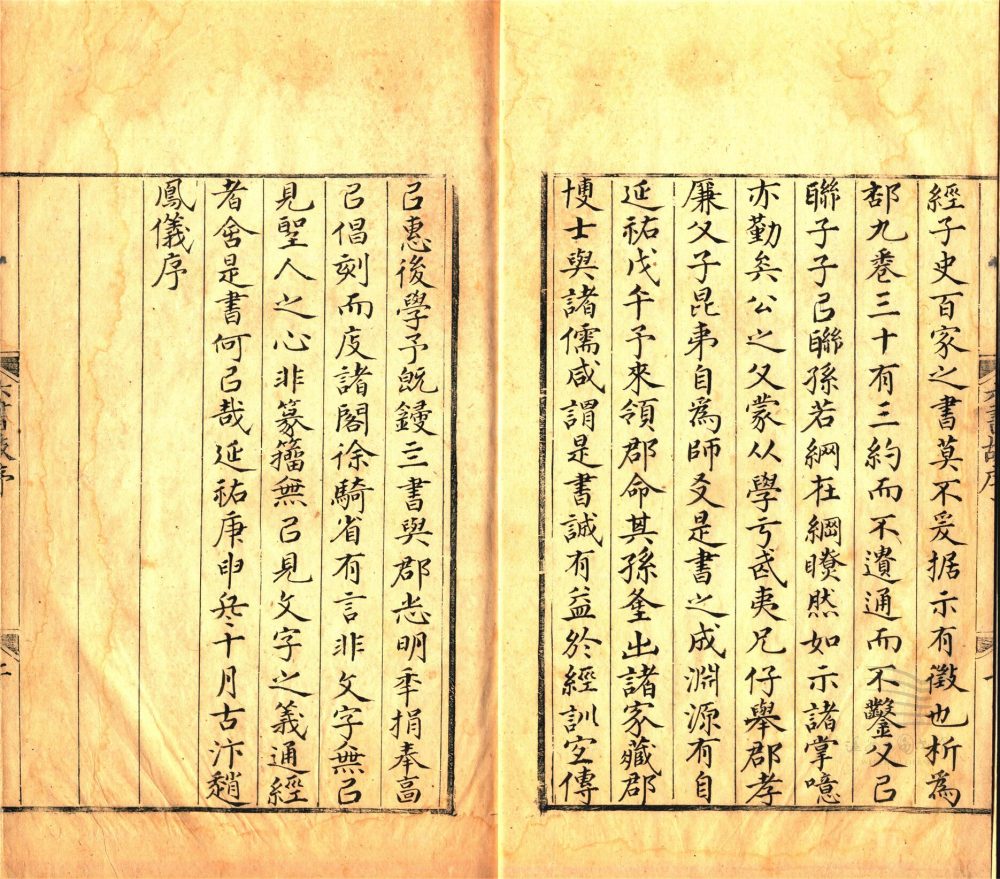 經子史百家之書莫不爰据示有徵也析爲
部九卷三十有三約而不遺通而不鑿父㠯
聯子子㠯聯孫若網在綱瞭然如示諸掌噫
亦勤矣公之父蒙从學亏武夷兄仔舉郡孝
廉父子昆弟自爲師友是書之成淵源有自
延祐戊午予來領郡命其孫奎出諸家藏郡
博士與諸儒咸謂是書誠有益於經訓宜傳
㠯惠後學予既鋟三書與郡志明秊捐奉啚
㠯倡刻而庋諸閣徐騎省有言非文字無㠯
見聖人之心非篆籀無㠯見文字之義通經
者舍是書何㠯哉延祐庚申冬十月古汴趙
鳳儀序
六書故序
六書故序